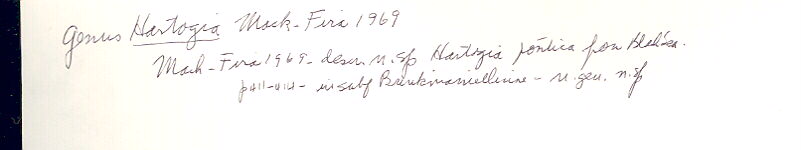 Genus Hartogia Mack-Fira 1969
Mack-Fira 1969- descr. n. sp Hartogia pontica from Blk Sea.
p411-414 - in subf Brinkmaniellinae - n. gen. n. sp